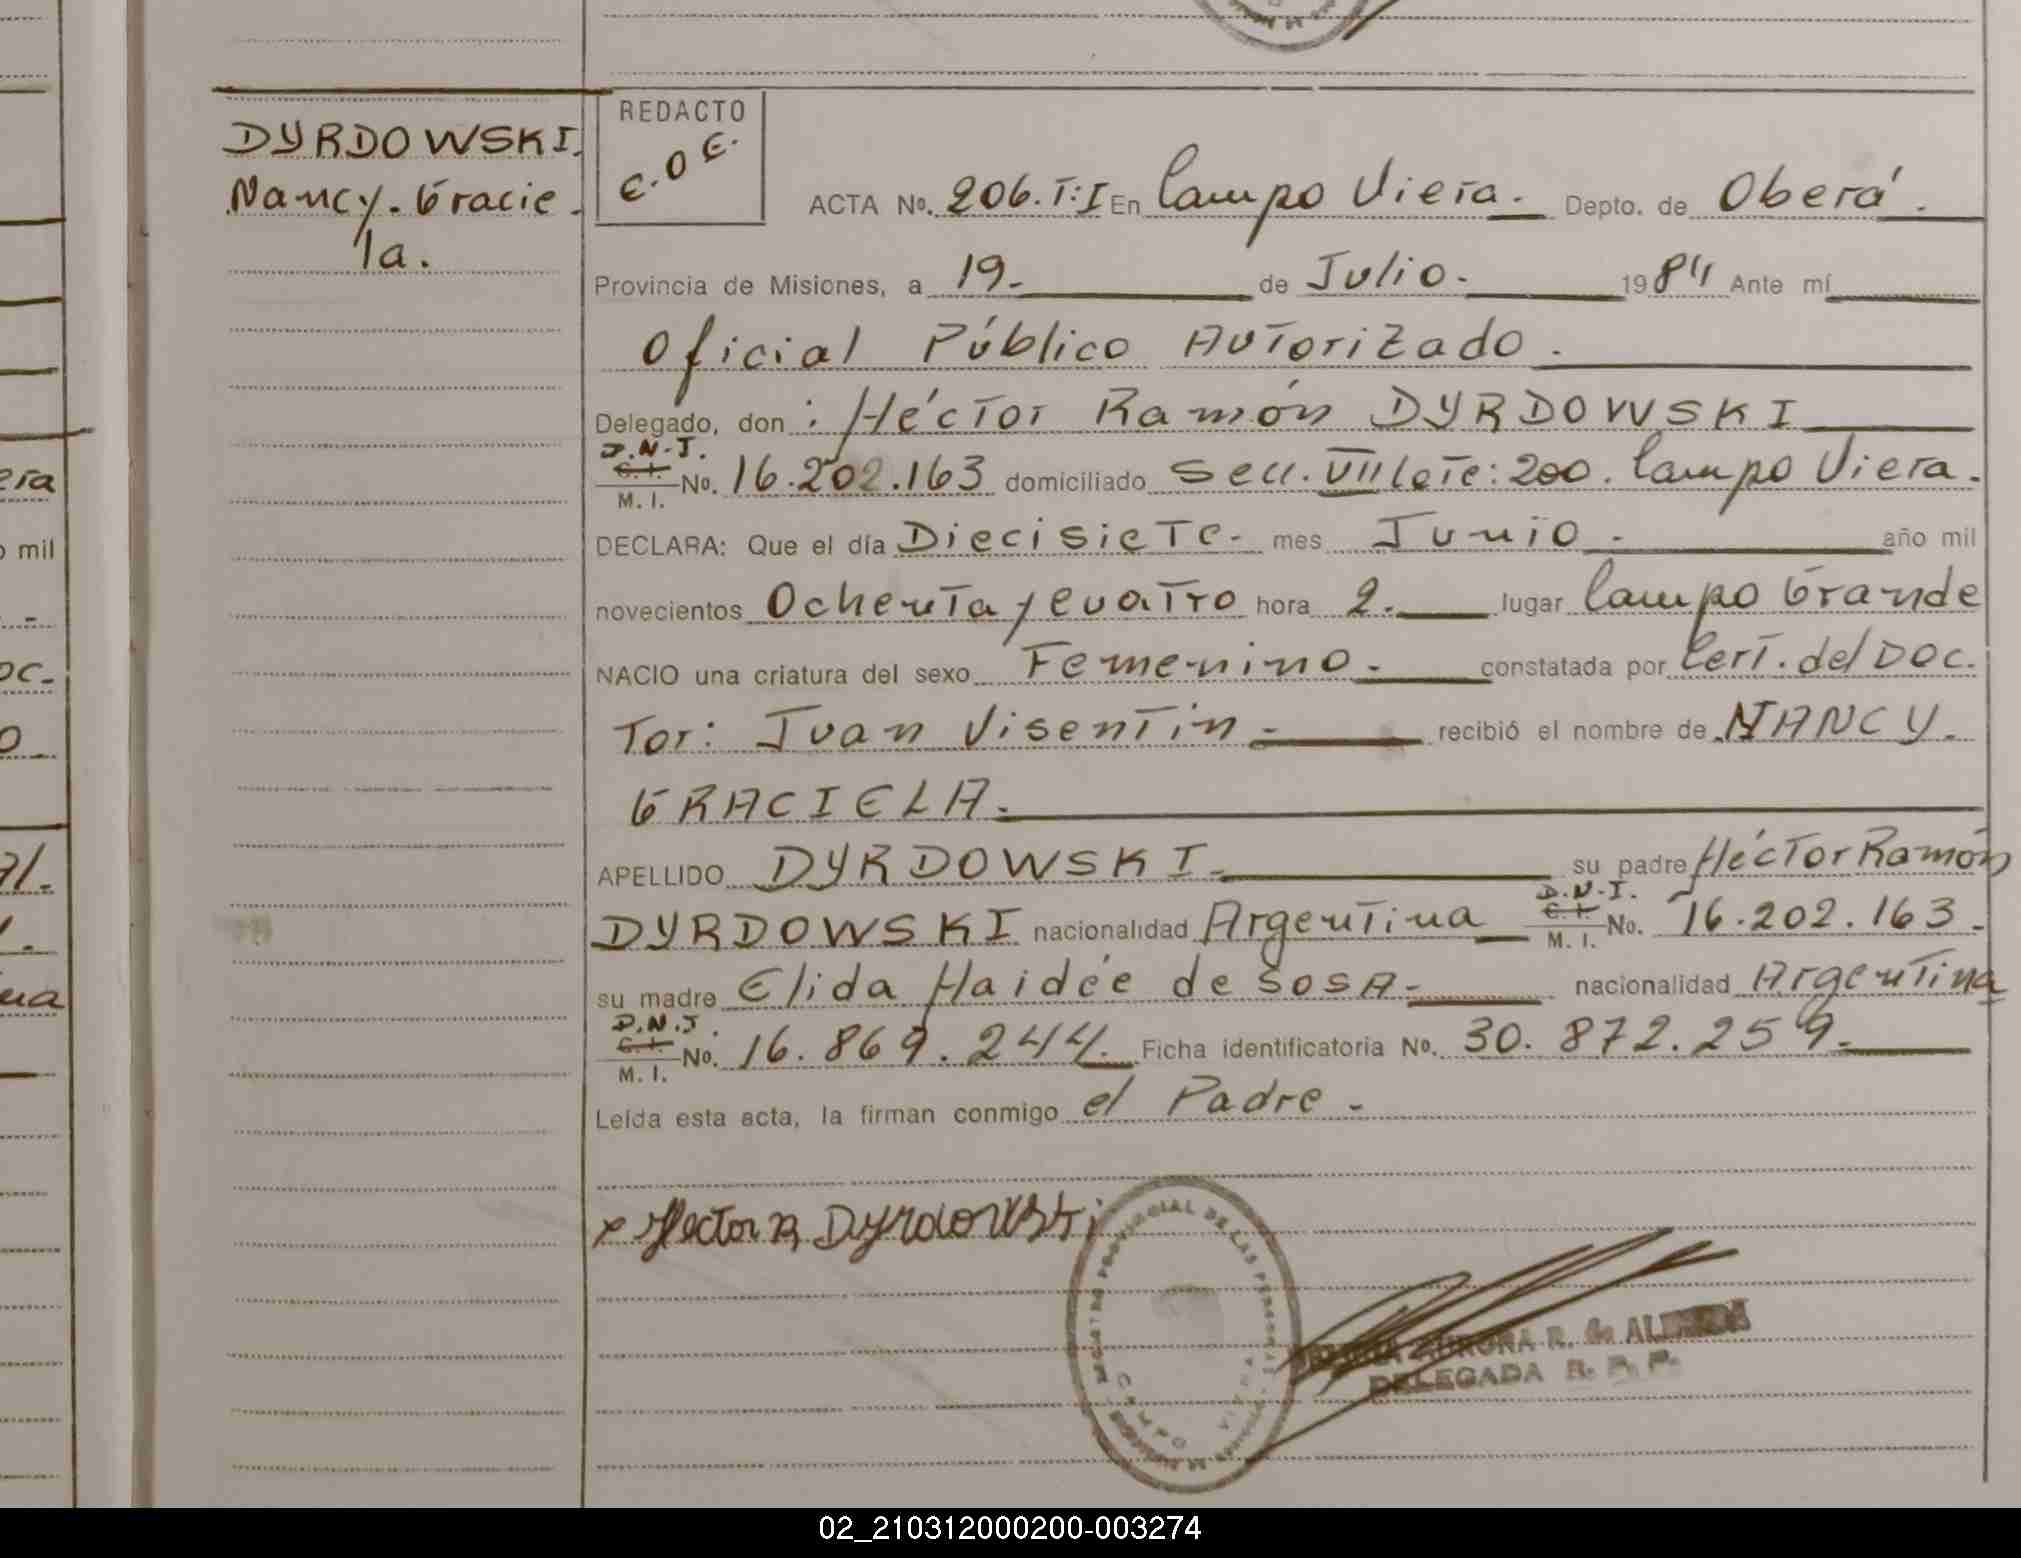 DYRDOWSKI.
Nancy. Gracie-
la.
REDACTO
E.O.E.
ACTA No. 206.T:I En Campo Viera. Depto. de Oberá.
Provincia de Misiones, a 19. de Julio. 1984 Ante mí
Oficial Público Autorizado.
Delegado, don : Héctor Ramón DYRDOWSKI
D.N.I.
C.I.
M. I. No. 16.202.163 domiciliado Secc. VII Lote: 200. Campo Viera.
DECLARA: Que el día Diecisiete- mes Junio. año mil
novecientos Ochenta y cuatro hora 2. lugar Campo Grande
NACIO una criatura del sexo Femenino. constatada por Cert. del Doc.
Tor: Juan Visentin. recibió el nombre de NANCY.
GRACIELA.
APELLIDO DYRDOWSKI. su padre Héctor Ramón
D.N.I.
C.I.
DYRDOWSKI nacionalidad Argentina M. I. No. 16.202.163.
su madre Elida Haidée de SOSA. nacionalidad Argentina
D.N.I.
C.I.
M. I. No. 16.869.244. Ficha identificatoria No. 30.872.259.
Leída esta acta, la firman conmigo el Padre.
x Hector R Dyrdowski
REGISTRO PROVINCIAL DE LAS PERSONAS
CAMPO VIERA
MISIONES
AURORA R. de
DELEGADA R. P. P.
era
o mil
oc.
02_210312000200-003274